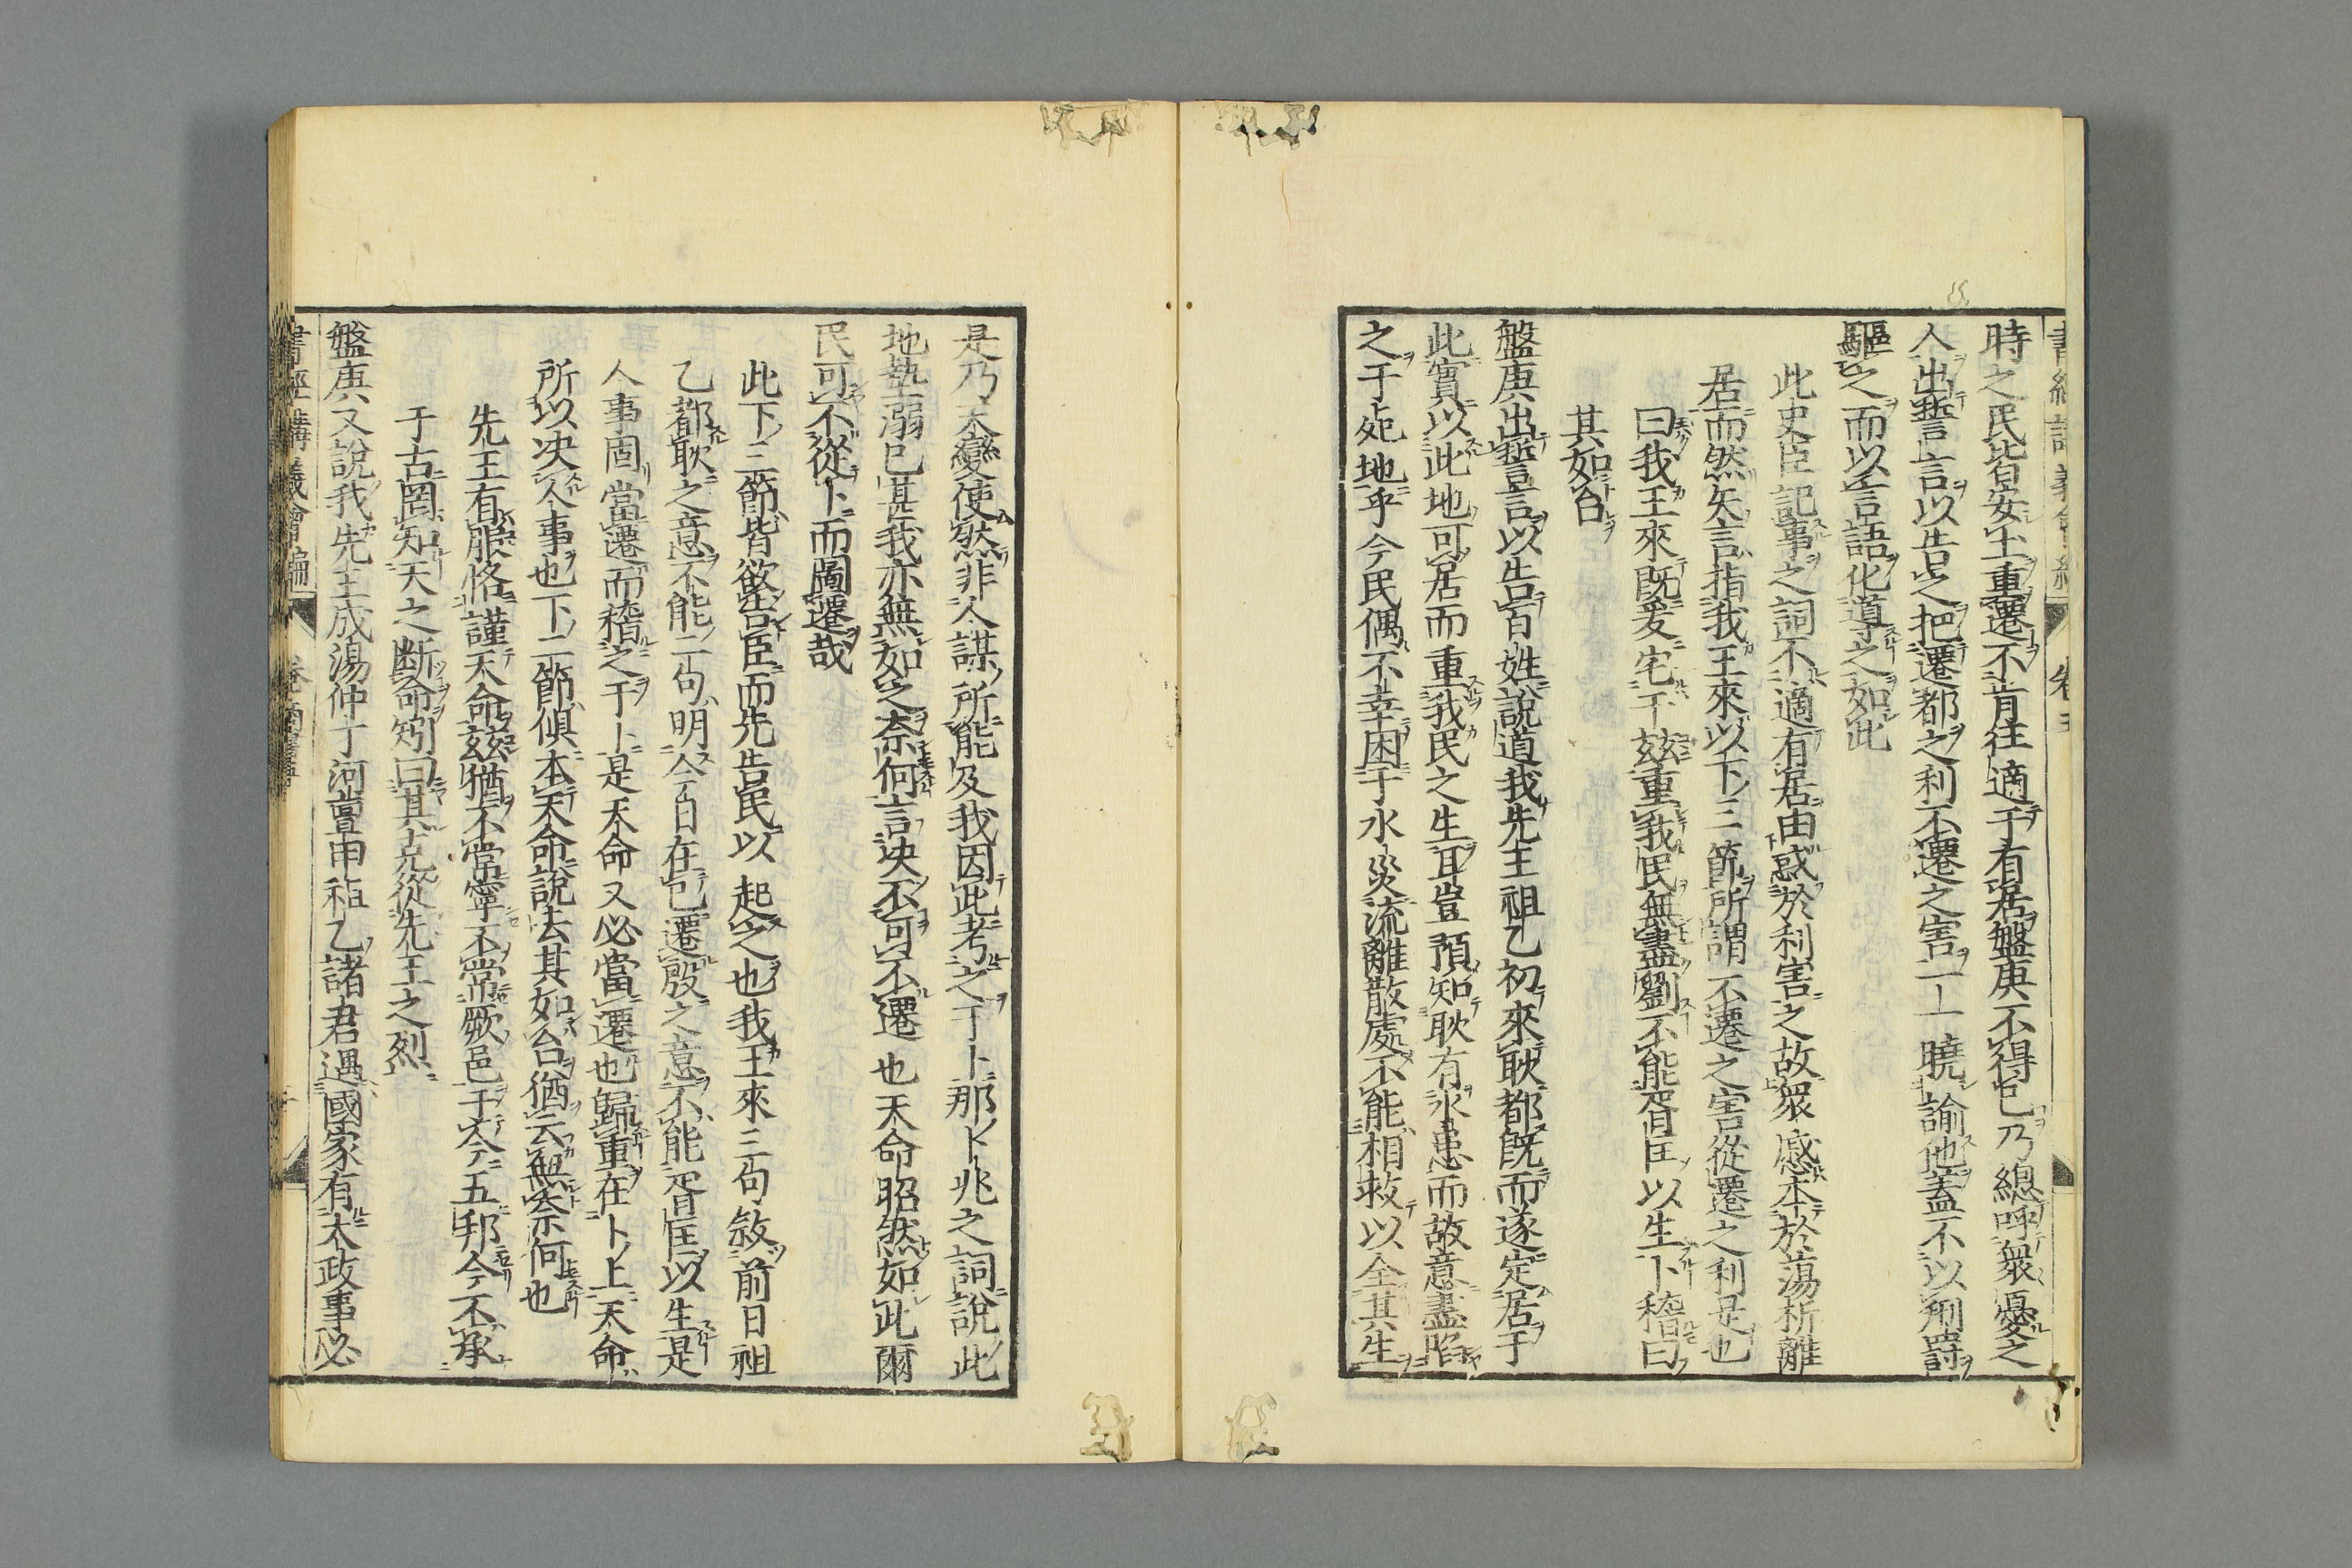 時之民皆安土重遷不肯往適于有居盤庚不得已乃總呼衆憂之
人出誓言以告之把遷都之利不遷之害一一曉諭他蓋不以刑罰
驅之而以言語化導之如此
此史臣記事之詞不適有居由惑於利害之故衆慼本於蕩析離
居而然矢言指我王來以下三節所謂不遷之害從遷之利是也
曰我王來既爰宅于茲重我民無盡劉不能胥匡以生卜稽曰
其如台
盤庚出誓言以告百姓說道我先王祖乙初來耿都既而遂定居于
此實以此地可居而重我民之生耳豈預知耿有水患而故意盡陷
之于死地乎今民偶不幸困于水災流離散處不能相救以全其生
是乃天變使然非人謀所能及我因此考之于卜那卜兆之詞說此
地墊溺已甚我亦無如之奈何言決不可不遷也天命昭然如此爾
民可不從卜而圖遷哉
此下三節皆欲告臣而先告民以起之也我王來三句敘前日祖
乙都耿之意不能二句明今日在已遷殷之意不能胥匡以生是
人事固當遷而稽之于卜是天命又必當遷也歸重在卜上天命
所以決人事也下二節俱本天命說去其如台猶云無奈何也
先王有服恪謹天命茲猶不常寧不常厥邑于今五邦今不承
于古罔知天之断命矧曰其克從先王之烈
盤庚又說我先王成湯仲丁河亶甲祖乙諸君遇國家有大政事必
書經講義會編 卷 商書